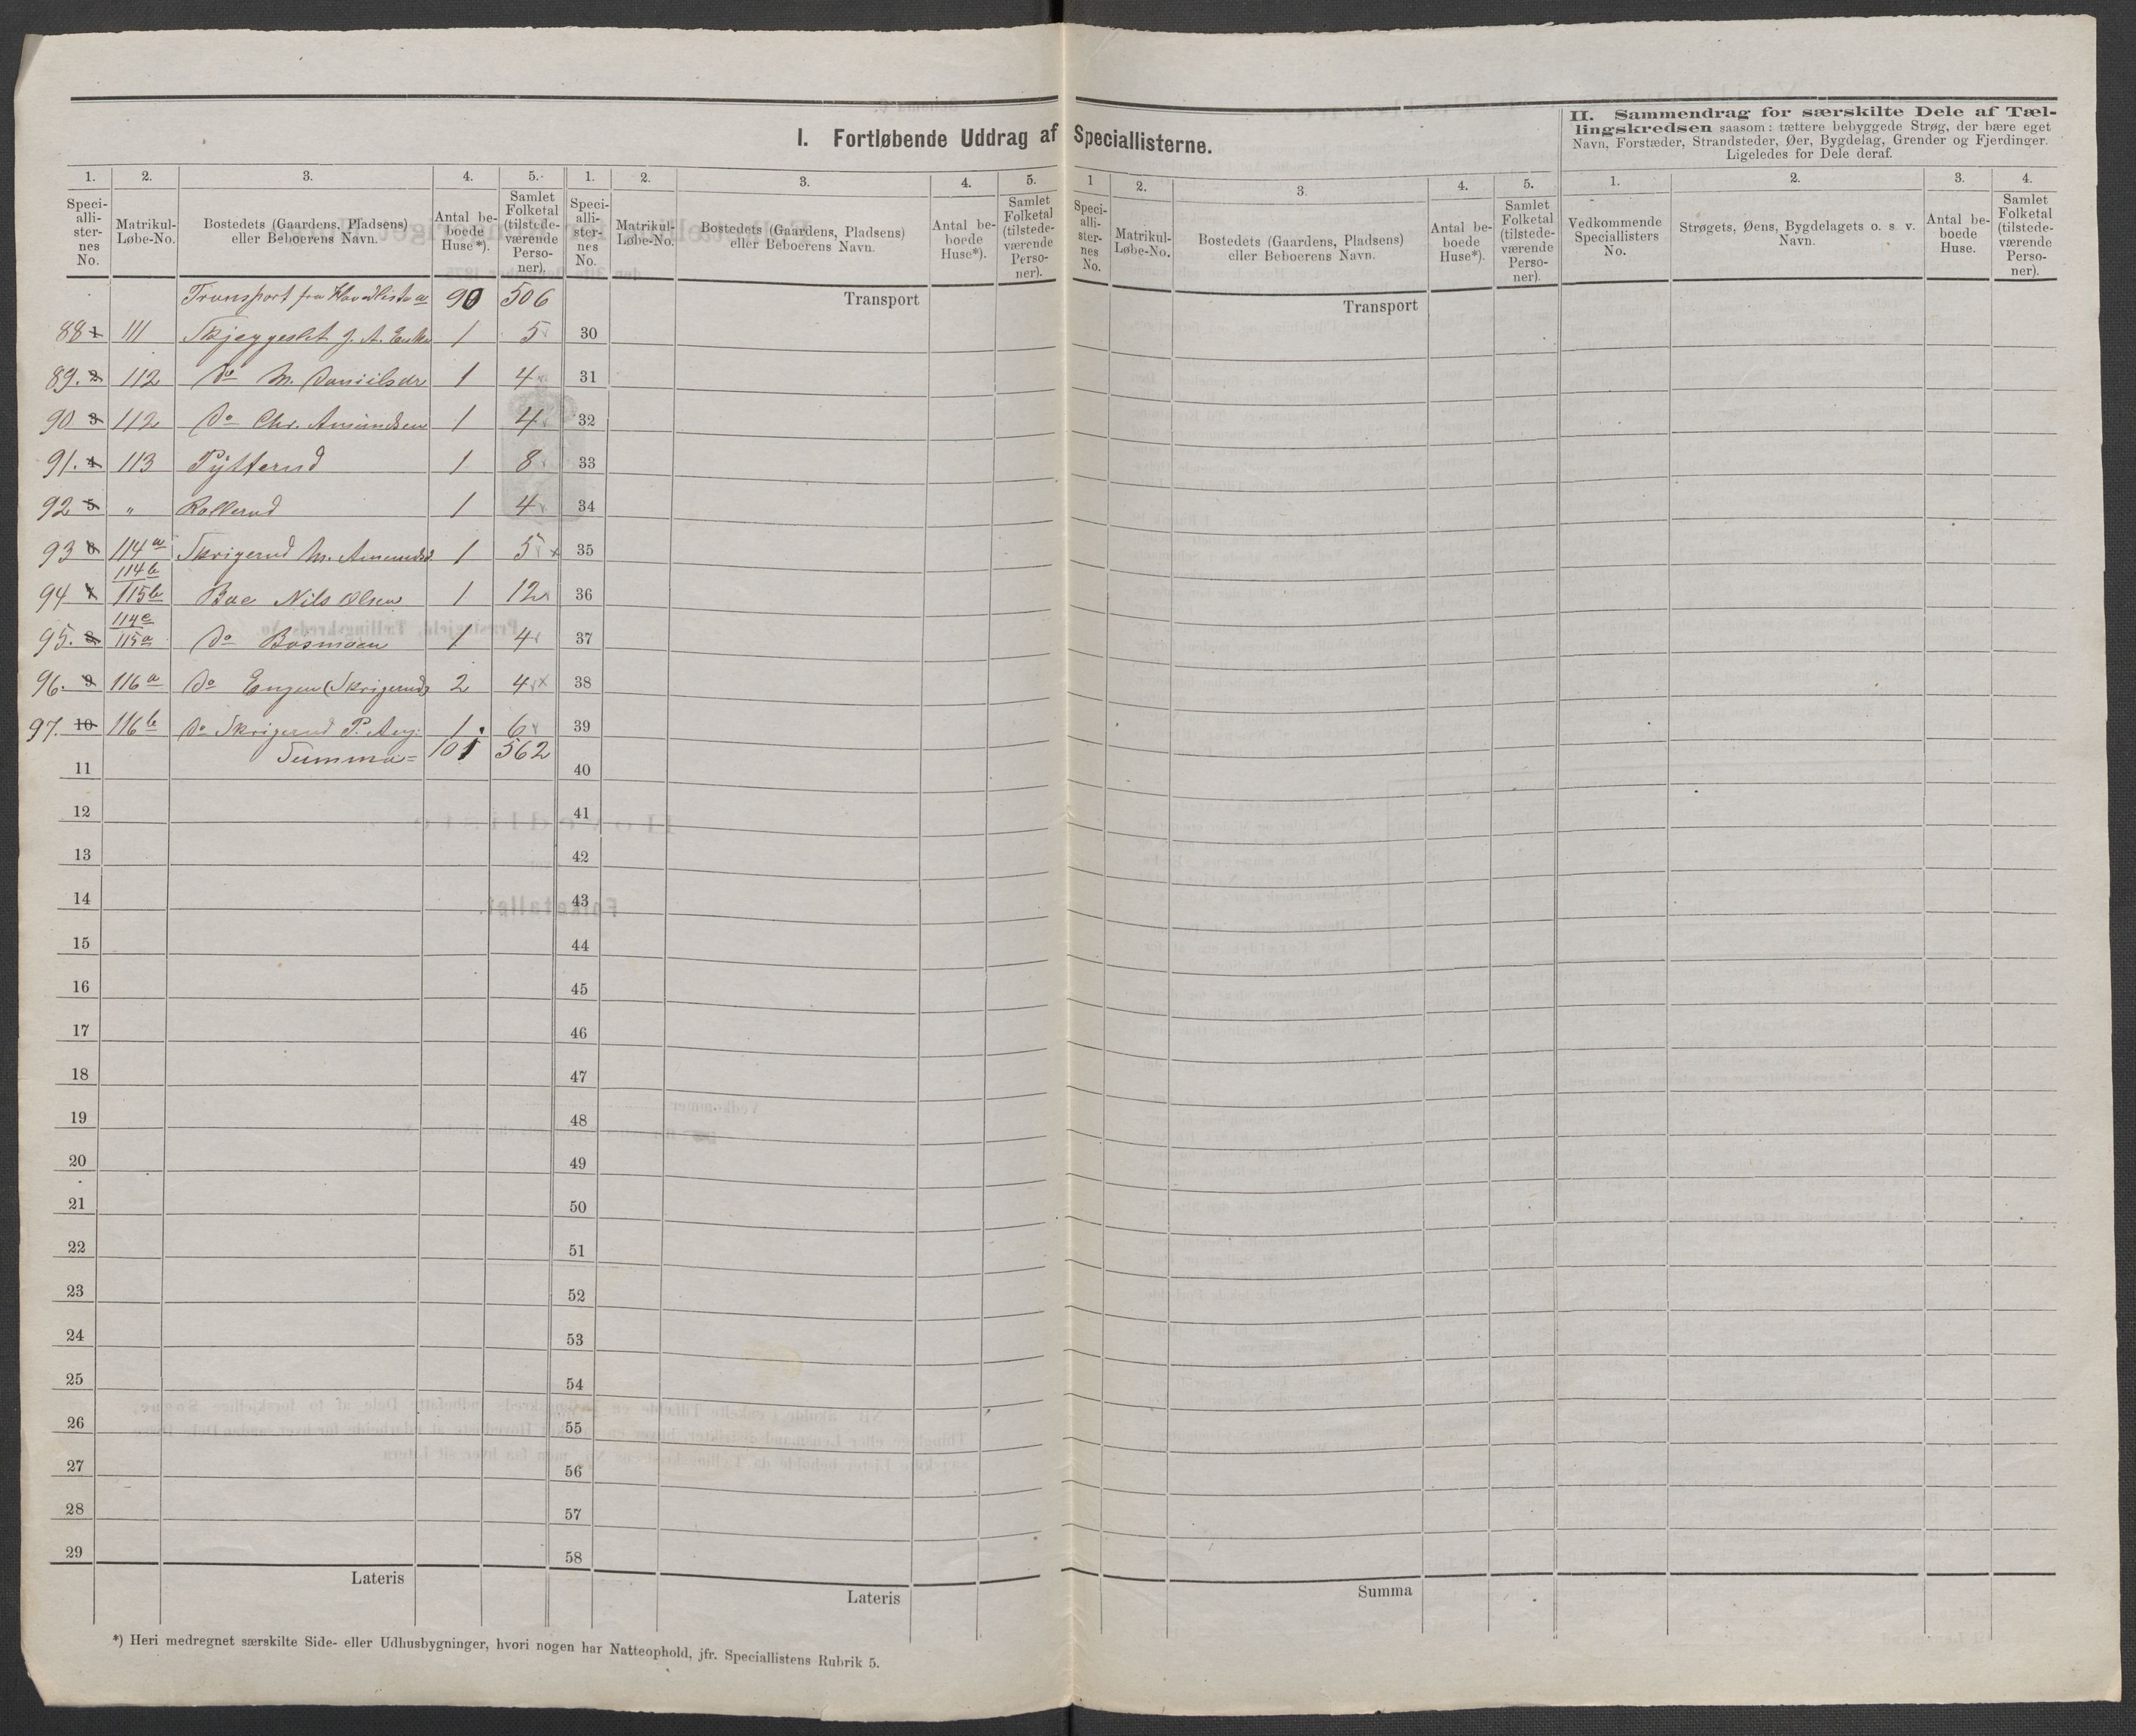 I. Fortløbende Uddrag af Speciallisterne.
II. Sammendrag for særskilte Dele af Tæl-
lingskredsen saasom: tættere bebyggede Strøg, der bære eget
Navn, Forstæder, Strandsteder, Øer, Bygdelag, Grender og Fjerdinger.
Ligeledes for Dele deraf.
1. 2. 3. 4. 5. 1. 2. 3. 4. 5. 1 2. 3. 4. 5. 1. 2. 3. 4.
Speci-
alli-
ster-
nes
No.
Matrikul-
Løbe-No.
Bostedets (Gaardens, Pladsens)
eller Beboerens Navn.
Antal be-
boede
Huse*).
Samlet
Folketal
(tilstede-
værende
Perso-
ner).
Speci-
alli-
ster-
nes
No.
Matrikul-
Løbe-No.
Bostedets (Gaardens, Pladsens)
eller Beboerens Navn.
Antal be-
boede
Huse*).
Samlet
Folketal
(tilstede-
værende
Perso-
ner).
Speci-
alli-
ster-
nes
No.
Matrikul-
Løbe-No.
Bostedets (Gaardens, Pladsens)
eller Beboerens Navn.
Antal be-
boede
Huse*).
Samlet
Folketal
(tilstede-
værende
Perso-
ner).
Vedkommende
Speciallisters
No.
Strøgets, Øens, Bygdelagets o. s. v.
Navn.
Antal be-
boede
Huse.
Samlet
Folketal
(tilstede-
værende
Perso-
ner).
Transport fra Hovedliste a 90 506 Transport Transport
88 1 111 Skjeggeslet J. A. Enke 1 5 30
89. 2 112 Do M. Danielsdr 1 4 31
90 3 112 Do Chr. Amundsen 1 4 32
91. 4 113 Pytterud 1 8 33
92 5 " Rollerud 1 4 34
93 6 114 a Skrigerud M. 1 5 35
114 b
94 7 115 b Bae Nils Olsen 1 12 36
114 c
95. 8 115 a Do Basmoen 1 4 37
96. 9 116 a Do Engen (Skrigerud) 2 4 38
97. 10 116 b Do Skrigerud P. 1 6 39
Summa = 101 562
11 40
12 41
13 42
14 43
15 44
16 45
17 46
18 47
19 48
20 49
21 50
22 51
23 52
24 53
25 54
26 55
27 56
28 57
29 58
Lateris Lateris Summa
*) Heri medregnet særskilte Side- eller Udhusbygninger, hvori nogen har Natteophold, jfr. Speciallistens Rubrik 5.